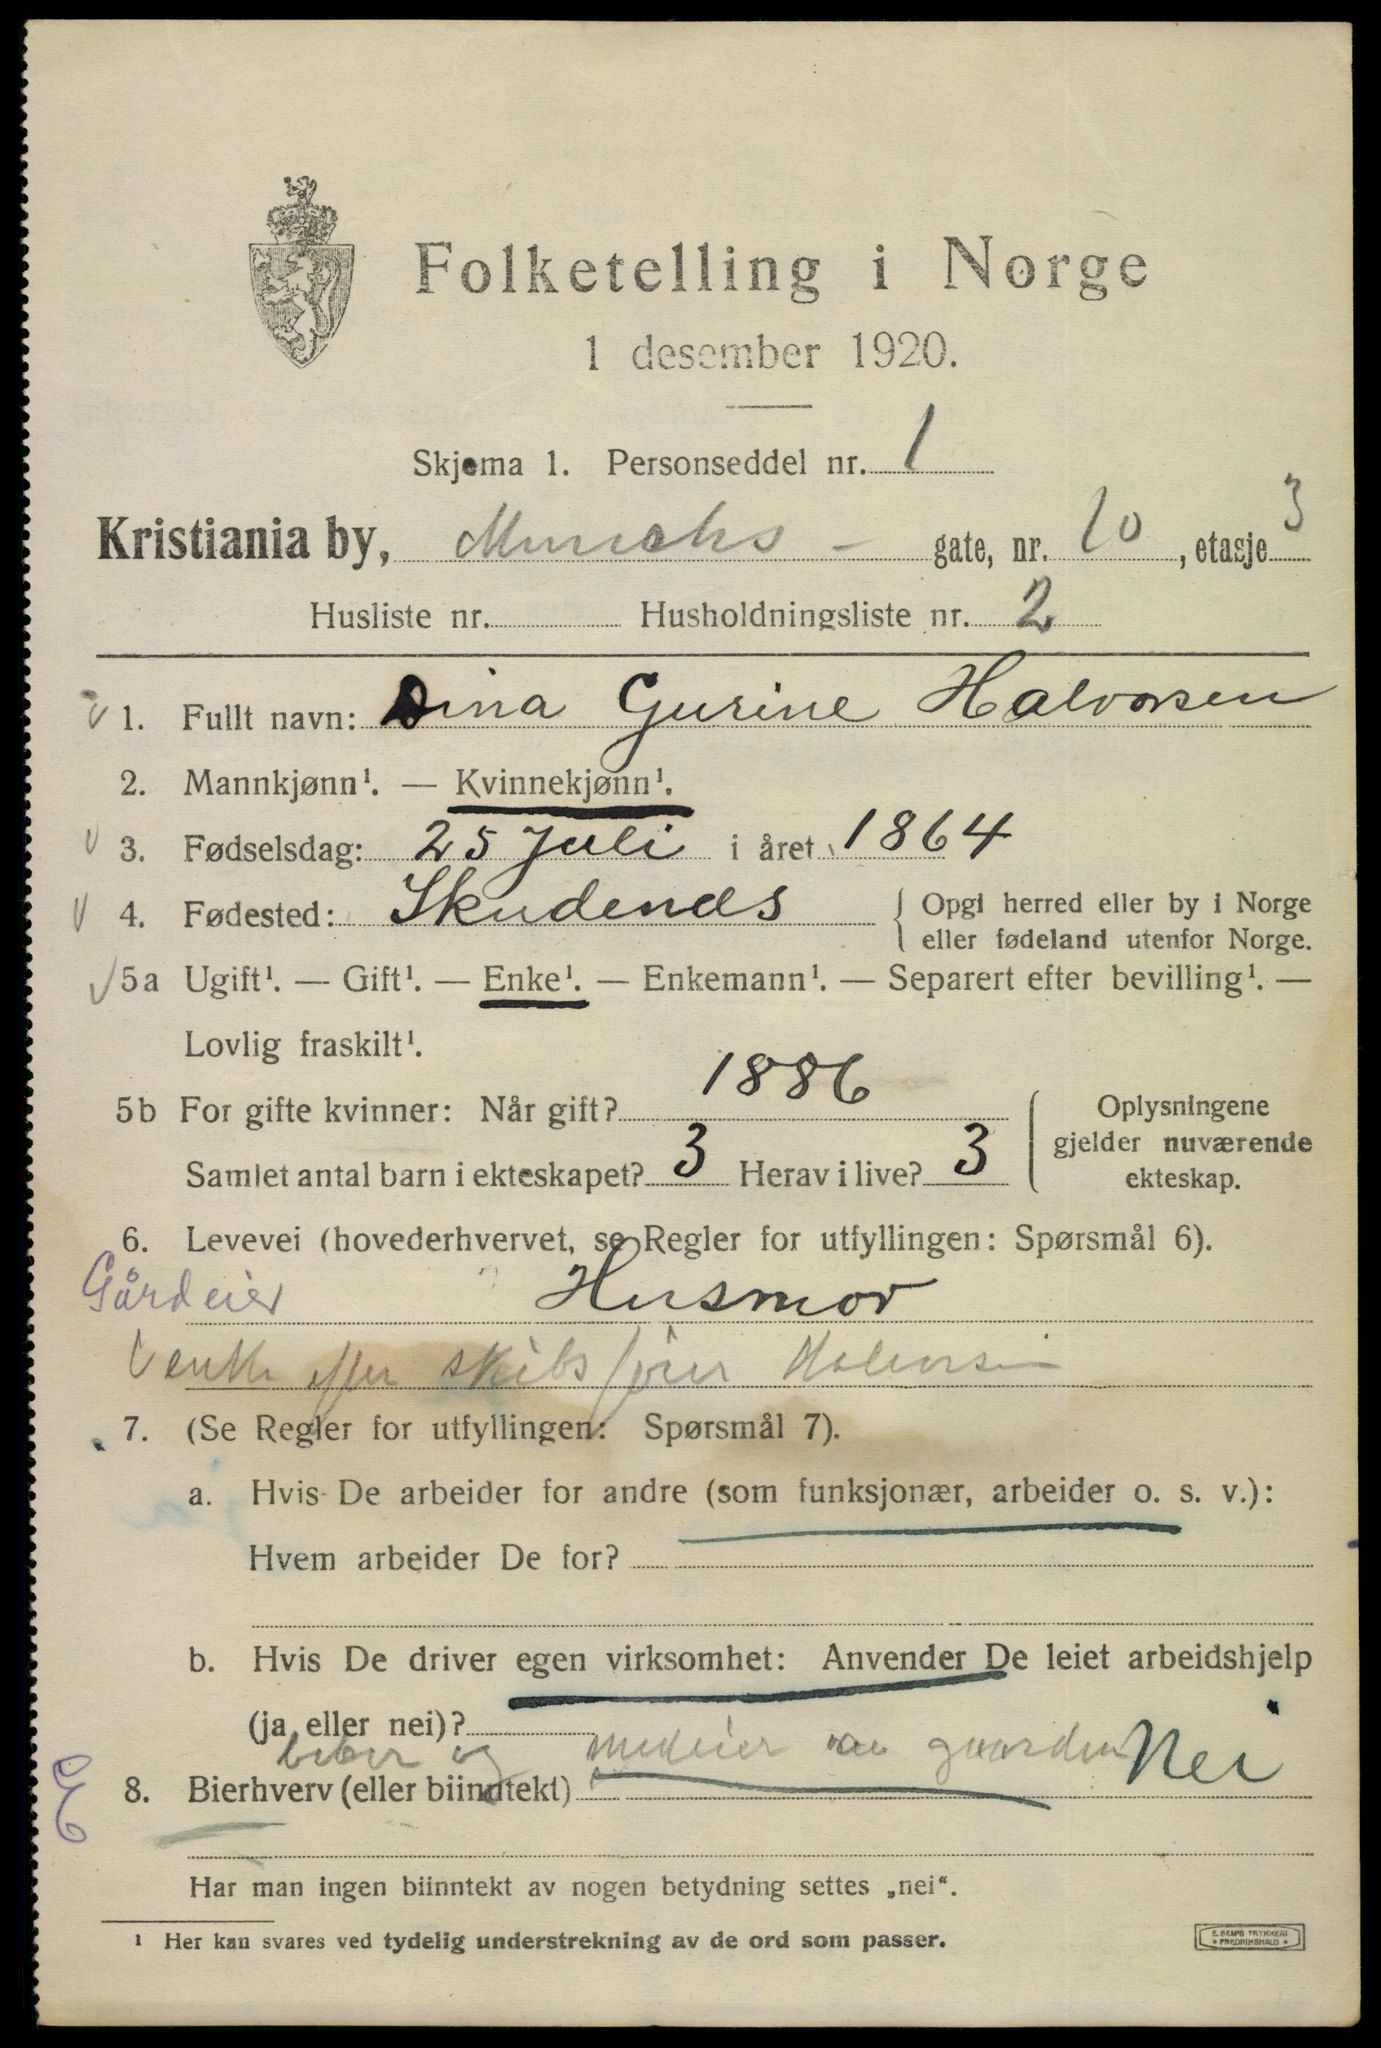 Folketelling i Norge
1 desember 1920.
Skjema 1. Personseddel nr. 1
Kristiania by, Munchs - gate, nr. 10, etasje 3
Husliste nr. Husholdningsliste nr. 2
1. Fullt navn: Dina Gurine Halvorsen
2. Mannkjønn¹. — Kvinnekjønn¹.
3. Fødselsdag: 25 Juli i året 1864
4. Fødested: Skudenes { Opgi herred eller by i Norge
eller fødeland utenfor Norge.
5a Ugift¹. — Gift¹. — Enke¹. — Enkemann¹. — Separert efter bevilling¹. —
Lovlig fraskilt¹.
5b For gifte kvinner: Når gift? 1886
Samlet antal barn i ekteskapet? 3 Herav i live? 3
Oplysningene
gjelder nuværende
ekteskap.
6. Levevei (hovederhvervet, se Regler for utfyllingen: Spørsmål 6).
Gårdeier Husmor
enke efter skibsfører Halvorsen
7. (Se Regler for utfyllingen: Spørsmål 7).
a. Hvis De arbeider for andre (som funksjonær, arbeider o. s. v.):
Hvem arbeider De for?
b. Hvis De driver egen virksomhet: Anvender De leiet arbeidshjelp
(ja eller nei)?
og medeier av gaarden Nei
8. Bierhverv (eller biinntekt)
E
Har man ingen biinntekt av nogen betydning settes „nei“.
¹ Her kan svares ved tydelig understrekning av de ord som passer.
E. SEM'S TRYKKERI
* FREDRIKSHALD *